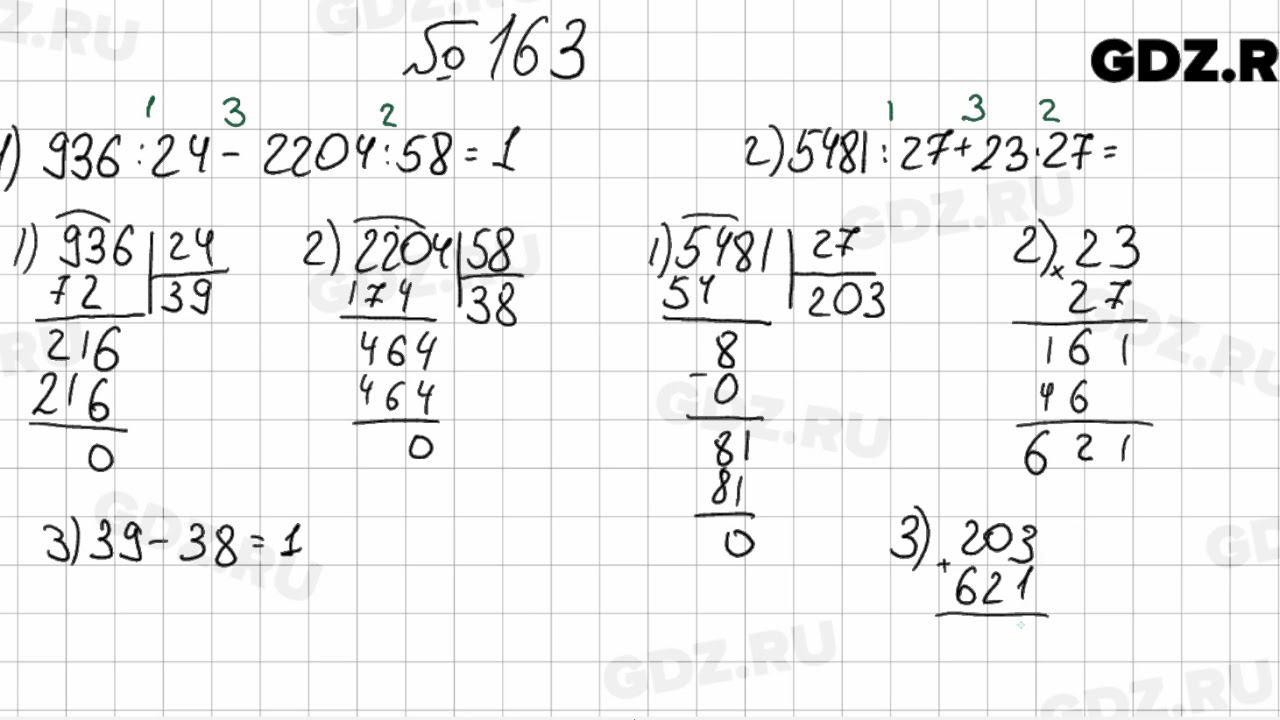 № 163
GDZ.R
1 3 2
1) 936 : 24 - 2204 : 58 = 1
1) 936 | 24
72 | 39
216
216
0
2) 2204 | 58
174 | 38
464
464
0
3) 39 - 38 = 1
1 3 2
2) 5481 : 27 + 23 · 27 =
1) 5481 | 27
54 | 203
8
- 0
81
81
0
2) × 23
27
161
46
621
3) + 203
621
GDZ.RU
GDZ.RU
GDZ.RU
GDZ.RU
GDZ.RU
GDZ.RU
GDZ.RU
GDZ.RU
GDZ.RU